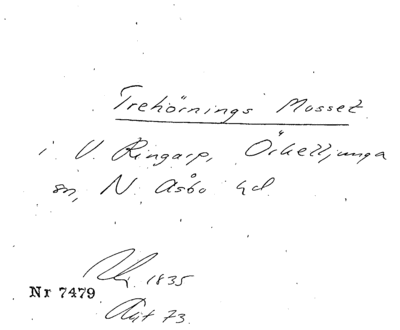 Trehörnings Mosset
i V. Ringarp, Örkelljunga
sn, N Åsbo hd
1835
Nr 7479
73